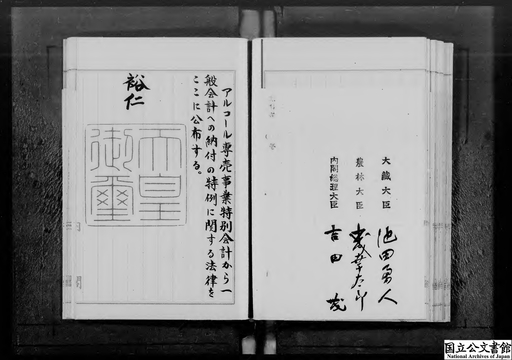 アルコール専売事業特別会計から一
般会計への納付の特例に関する法律を
ここに公布する。
裕仁
天皇
御璽
大蔵大臣
池田勇人
農林大臣
内閣総理大臣
吉田茂
国立公文書館
National Archives of Japan